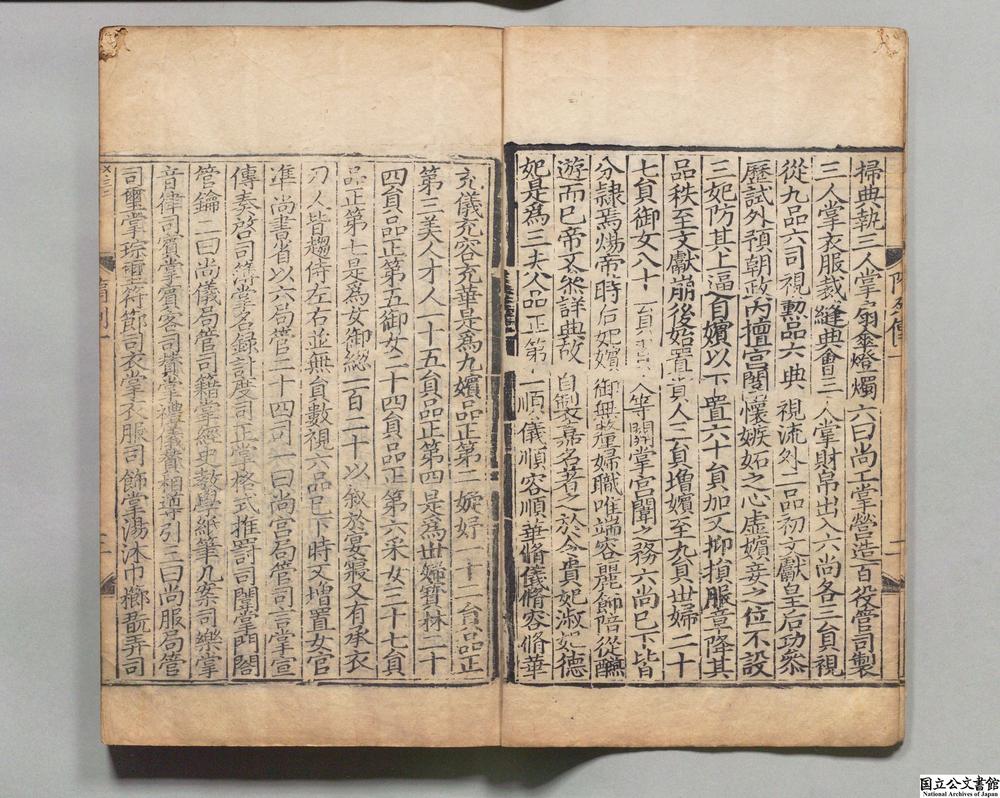 掃典執三人掌扇傘燈燭六曰尚工掌營造百役管司製
三人掌衣服裁縫典會三人掌財帛出入六尚各三員視
從九品六司視勲品六典視流外二品初文獻皇后功叅
歷試外預朝政内擅宫闈懷嫉妬之心虚嬪妾之位不設
三妃防其上逼自嬪以下置六十員加又抑損服章降其
品秩至文獻崩後始置貴人三員増嬪至九員世婦二十
七員御女八十一員貴人等關掌宫闈之務六尚已下皆
分隷焉煬帝時后妃嬪御無釐婦職唯端容麗飾陪從醼
遊而已帝又叅詳典故自製嘉名著之於令貴妃淑妃德
妃是爲三夫人品正第一順儀順容順華脩儀脩容脩華
充儀充容充華是爲九嬪品正第二婕妤一十二員品正
第三美人才人一十五員品正第四是爲世婦寳林二十
四員品正第五御女二十四員品正第六采女三十七員
品正第七是爲女御緫一百二十以敘於宴寢又有承衣
刀人皆趨侍左右並無員數視六品已下時又増置女官
凖尚書省以六局管二十四司一曰尚宫局管司言掌宣
傳奏啓司簿掌名錄計度司正掌格式推罰司闈掌門閤
管鑰二曰尚儀局管司籍掌經史教學紙筆几案司樂掌
音律司賓掌賓客司賛掌禮儀賛相導引三曰尚服局管
司璽掌琮璽符節司衣掌衣服司飾掌湯沐巾櫛翫弄司
国立公文書館
National Archives of Japan